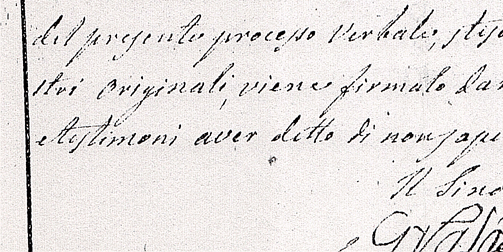 del presente processo verbale, steso
stri originali, viene firmato da
e testimoni aver detto di non sape
Il Sin